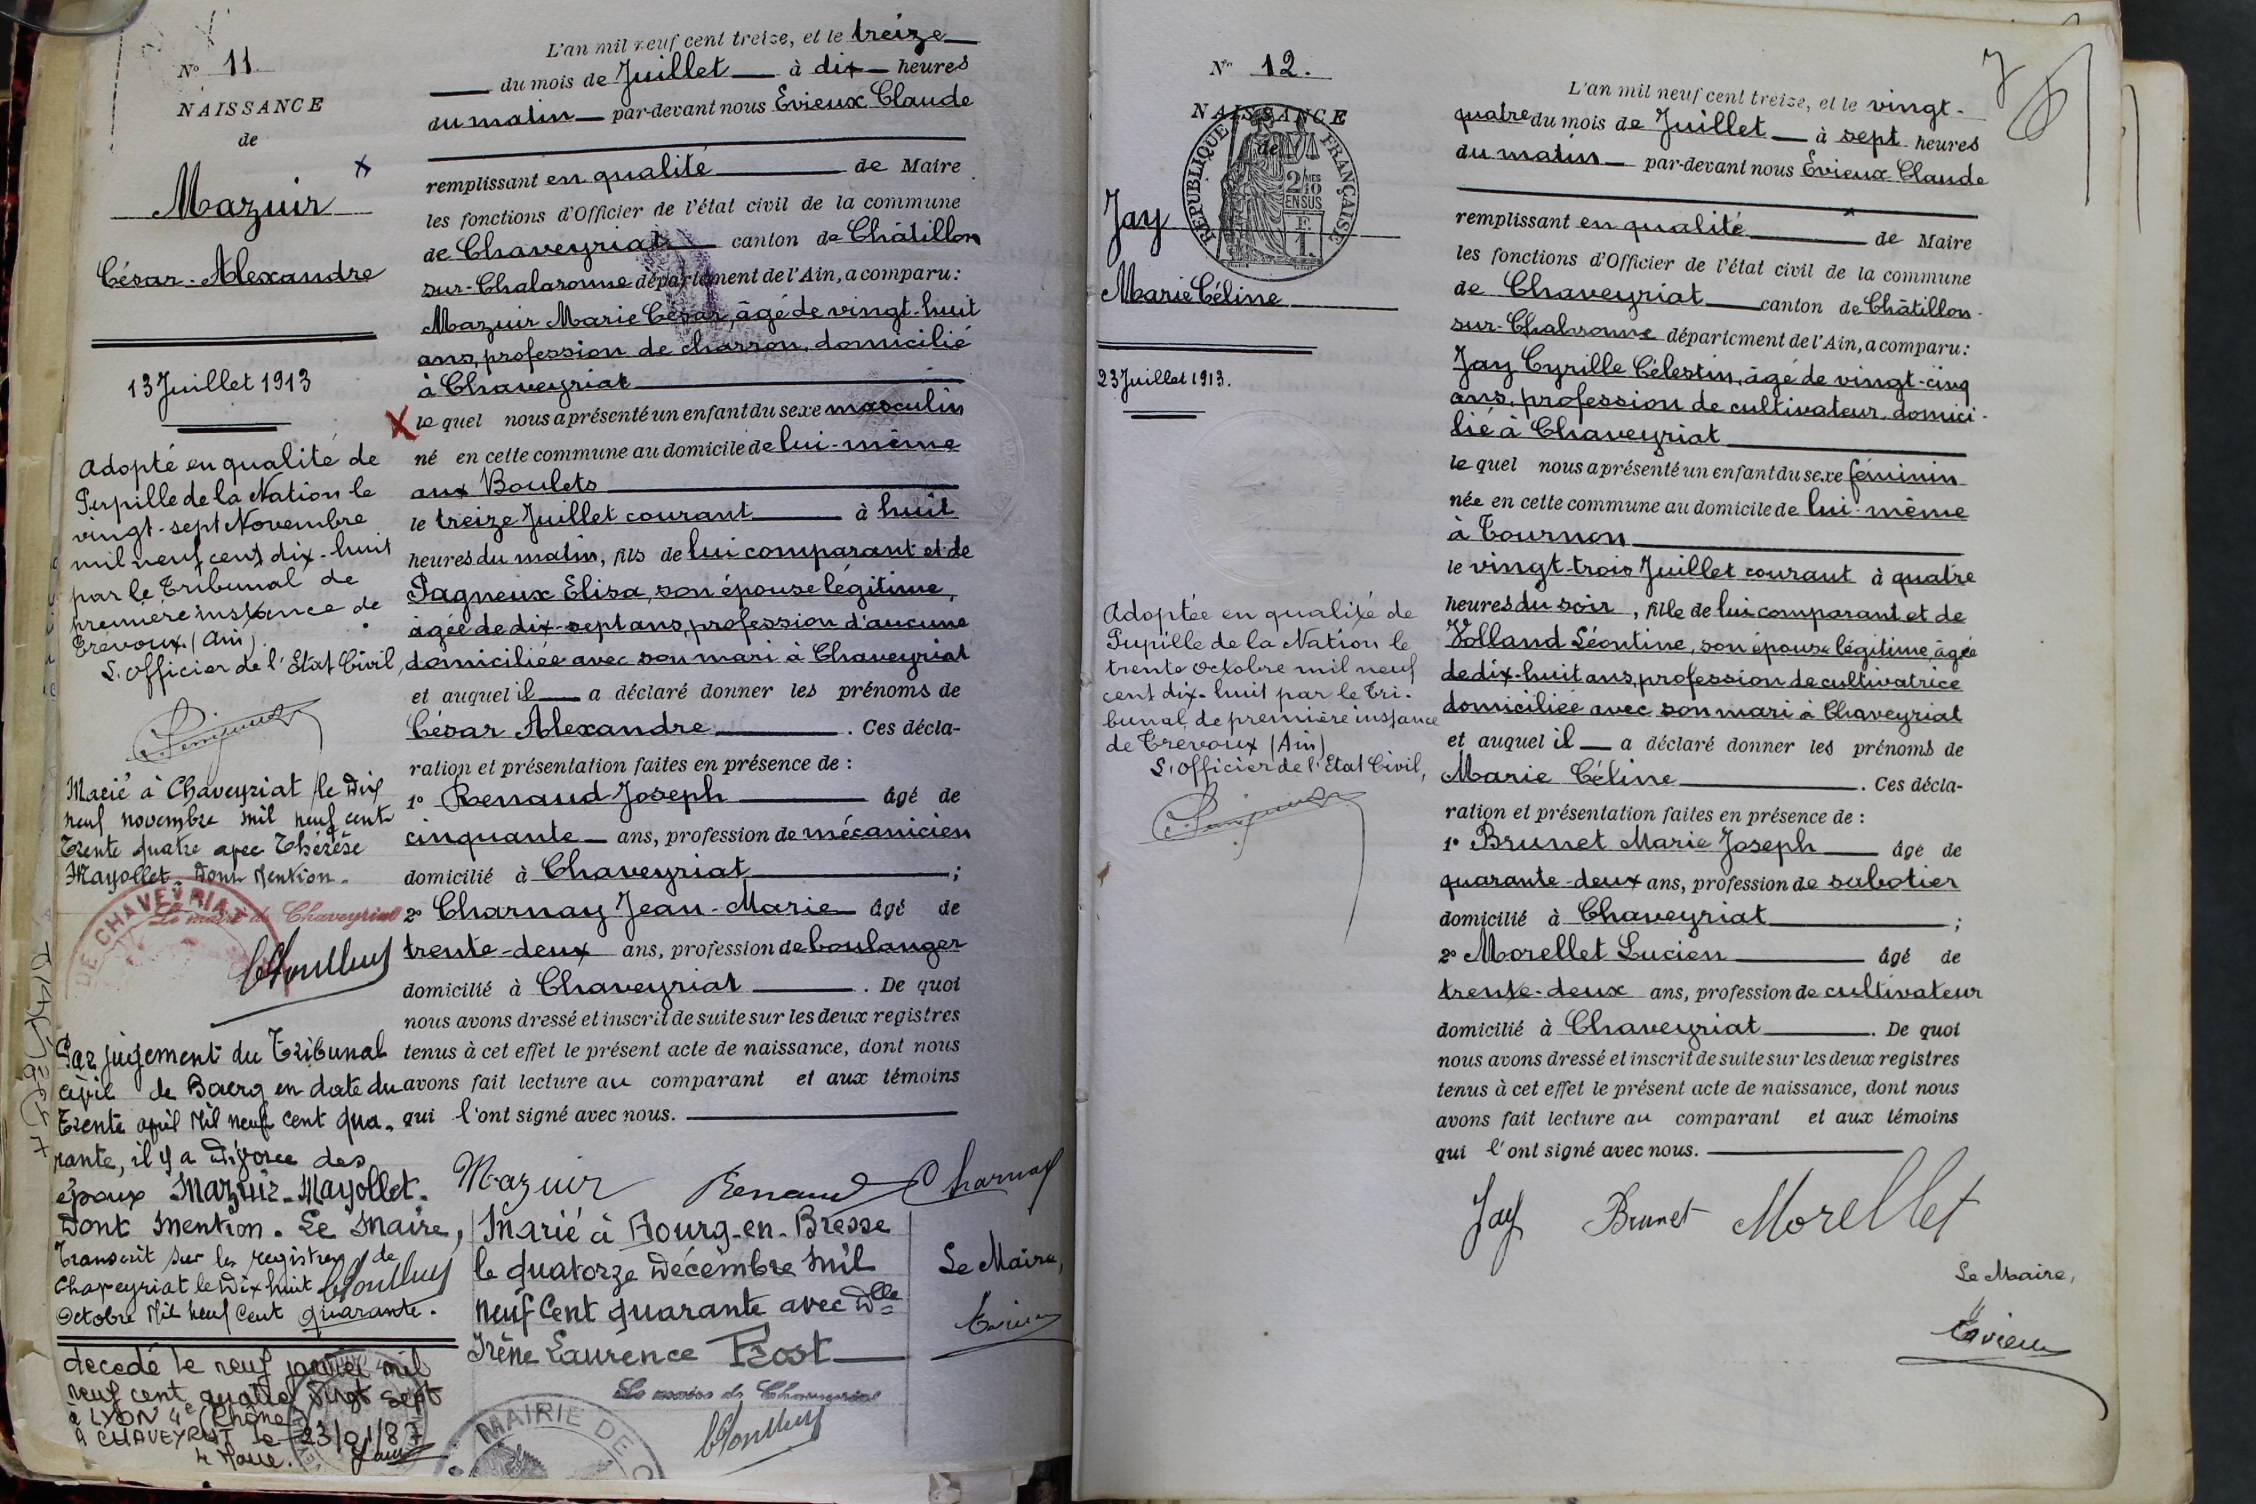 N° 11
NAISSANCE
de
Mazuir
César-Alexandre
13 Juillet 1913
Adopté en qualité de
Pupille de la Nation le
vingt-sept Novembre
mil neuf cent dix-huit
par le Tribunal de
première instance de
Trévoux (Ain).
L'officier de l'Etat Civil,
Marié à Chaveyriat le Dix
neuf novembre mil neuf cent
Trente quatre avec Thérèse
Mayollet. Dont Mention.
DE CHAVEYRIAT
Le maire de Chaveyriat
Par jugement du Tribunal
civil de Bourg en date du
Trente april Mil neuf cent qua-
rante, il y a Divorce des
époux Mazuir-Mayollet.
Dont Mention. Le Maire,
Transcrit sur les registres de
Chaveyriat le Dix huit
Octobre Mil neuf Cent quarante.
decedé le neuf janvier mil
neuf cent quatre vingt sept
à LYON 4e (Rhône)
A CHAVEYRIAT le 23/01/87
le Maire.
L'an mil neuf cent treize, et le treize
du mois de Juillet à dix heures
du matin par-devant nous Evieux Claude
remplissant en qualité de Maire
les fonctions d'Officier de l'état civil de la commune
de Chaveyriat canton de Châtillon
sur-Chalaronne département de l'Ain, a comparu :
Mazuir Marie César, âgé de vingt-huit
ans, profession de charron, domicilié
à Chaveyriat
X le quel nous a présenté un enfant du sexe masculin
né en cette commune au domicile de lui-même
aux Boulets
le treize Juillet courant à huit
heures du matin, fils de lui comparant et de
Pagneux Elisa, son épouse légitime,
âgée de dix-sept ans, profession d'aucune
domiciliée avec son mari à Chaveyriat
et auquel il a déclaré donner les prénoms de
César Alexandre. Ces décla-
ration et présentation faites en présence de :
1° Renaud Joseph âgé de
cinquante ans, profession de mécanicien
domicilié à Chaveyriat ;
2° Charnay Jean-Marie âgé de
trente-deux ans, profession de boulanger
domicilié à Chaveyriat. De quoi
nous avons dressé et inscrit de suite sur les deux registres
tenus à cet effet le présent acte de naissance, dont nous
avons fait lecture au comparant et aux témoins
qui l'ont signé avec nous.
Mazuir Renaud Charnay
Marié à Bourg-en-Bresse
le quatorze Décembre Mil
neuf Cent quarante avec Dlle
Irène Laurence Prost
Le maire de Chaveyriat
MAIRIE DE C
Le Maire,
Evieux
N° 12.
NAISSANCE
de
RÉPUBLIQUE FRANÇAISE
2/10 MES
EN SUS
Jay
Marie Céline
23 Juillet 1913.
Adoptée en qualité de
Pupille de la Nation le
trente octobre mil neuf
cent dix-huit par le Tri-
bunal de première instance
de Trévoux (Ain)
L'officier de l'Etat Civil,
L'an mil neuf cent treize, et le vingt-
quatre du mois de Juillet à sept heures
du matin par-devant nous Evieux Claude
remplissant en qualité de Maire
les fonctions d'Officier de l'état civil de la commune
de Chaveyriat canton de Châtillon-
sur-Chalaronne département de l'Ain, a comparu :
Jay Cyrille Célestin, âgé de vingt-cinq
ans, profession de cultivateur, domici-
lié à Chaveyriat
le quel nous a présenté un enfant du sexe féminin
née en cette commune au domicile de lui-même
à Tournon
le vingt-trois Juillet courant à quatre
heures du soir, fille de lui comparant et de
Volland Léontine, son épouse légitime, âgée
de dix-huit ans, profession de cultivatrice
domiciliée avec son mari à Chaveyriat
et auquel il a déclaré donner les prénoms de
Marie Céline. Ces décla-
ration et présentation faites en présence de :
1° Brunet Marie Joseph âgé de
quarante-deux ans, profession de sabotier
domicilié à Chaveyriat ;
2° Morellet Lucien âgé de
trente-deux ans, profession de cultivateur
domicilié à Chaveyriat. De quoi
nous avons dressé et inscrit de suite sur les deux registres
tenus à cet effet le présent acte de naissance, dont nous
avons fait lecture au comparant et aux témoins
qui l'ont signé avec nous.
Jay Brunet Morellet
Le Maire,
Evieux